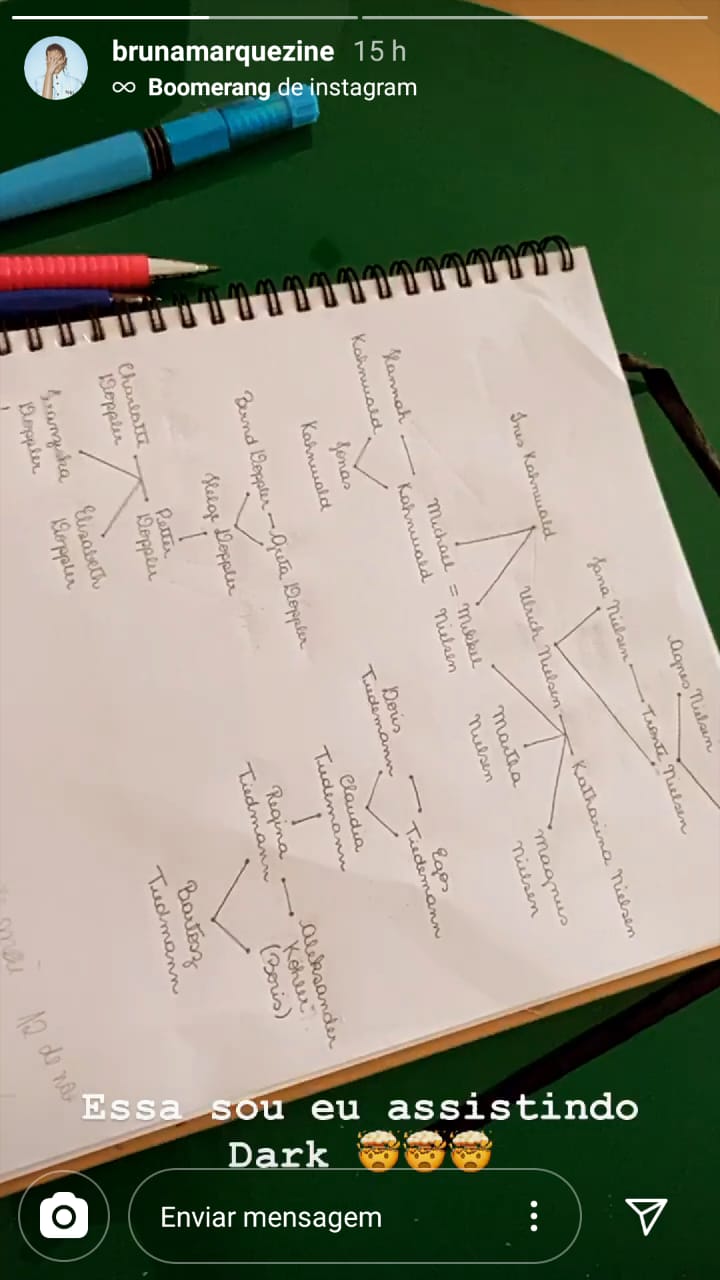 brunamarquezine 15 h
∞ Boomerang de instagram
Agnes Nielsen
Jana Nielsen
Tronte Nielsen
Ines Kahnwald
Ulrich Nielsen
Katharina Nielsen
Hannah
Kahnwald
Michael
Kahnwald
=
Mikkel
Nielsen
Martha
Nielsen
Magnus
Nielsen
Jonas
Kahnwald
Doris
Tiedemann
Egos
Tiedemann
Bernd Doppler
Greta Doppler
Claudia
Tiedemann
Helge Doppler
Regina
Tiedmann
Aleksander
Köhler
(Boris)
Charlotte
Doppler
Petter
Doppler
Bartosz
Tiedmann
Franziska
Doppler
Elisabeth
Doppler
12 de
Essa sou eu assistindo
Dark 🤯🤯🤯
Enviar mensagem